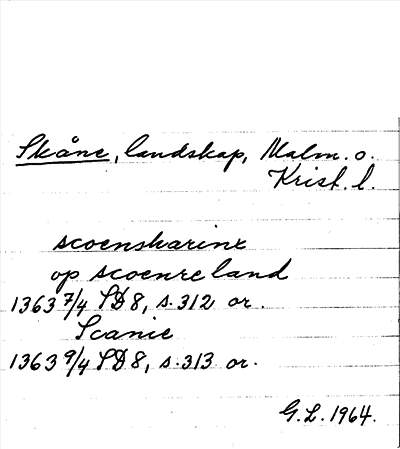 Skåne, landskap, Malm. o.
Krist. l.
scoensharinx
op scoenre land
1363 7/4 SD 8, s. 312 or.
Scanie
1363 9/4 SD 8, s. 313 or.
G. L. 1964.